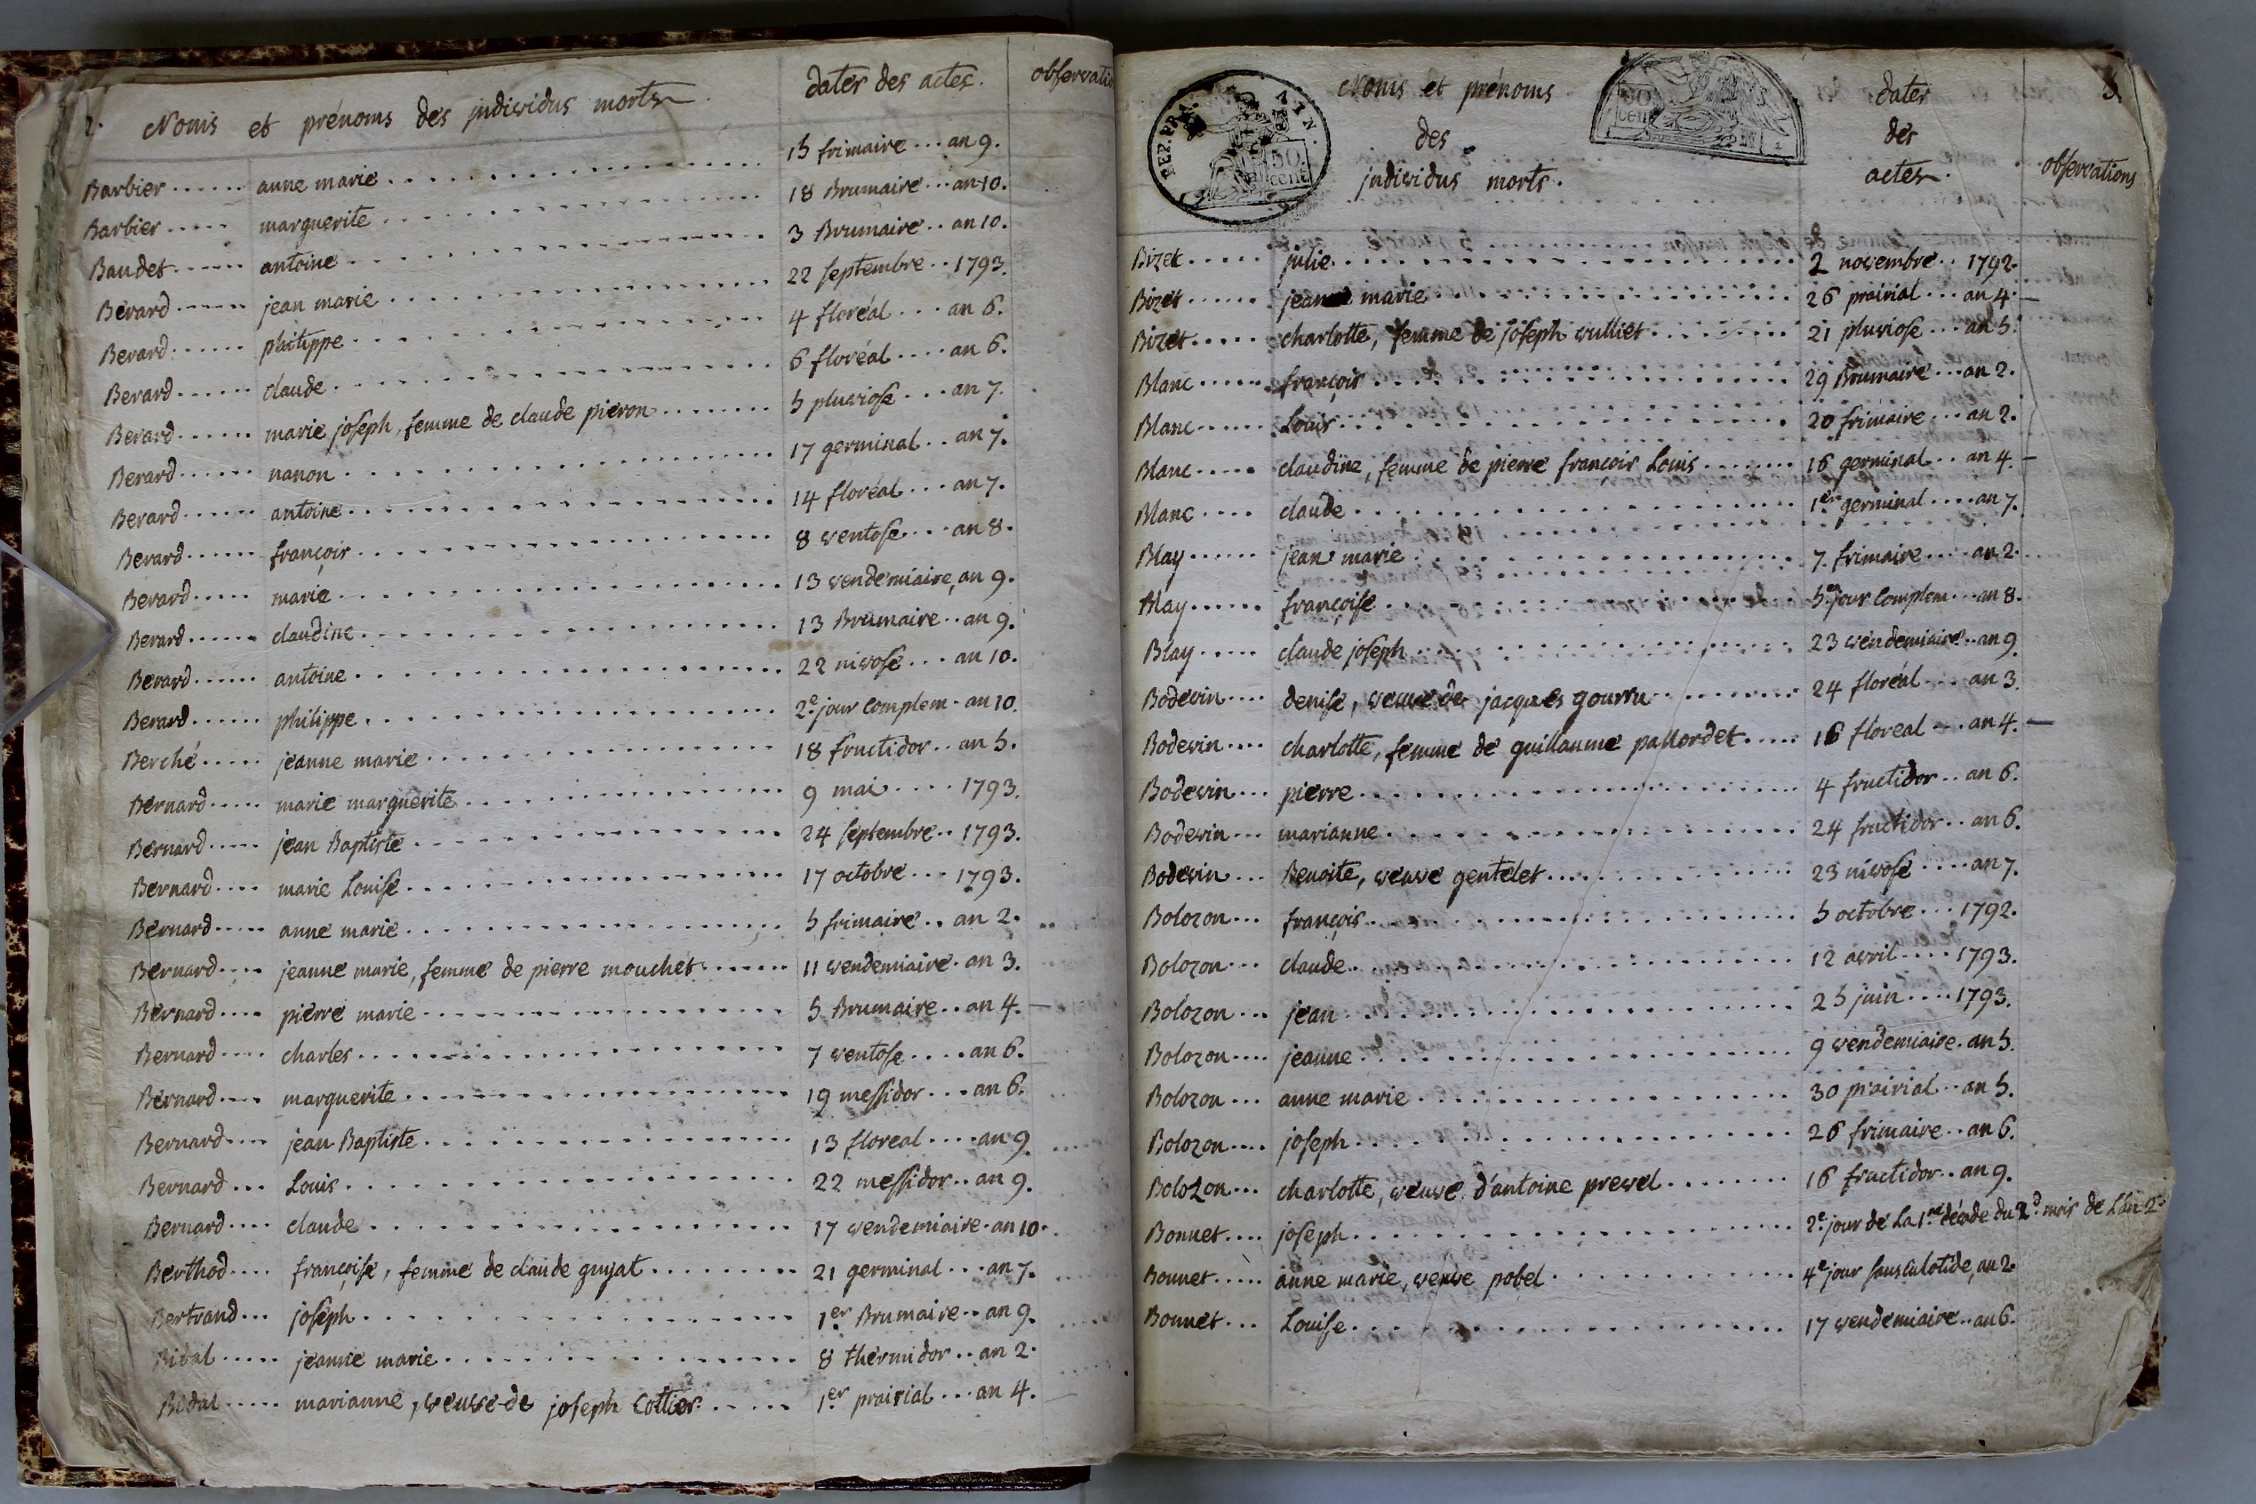 2. Noms et prénoms des individus morts dates des actes. observatio
Barbier anne marie 15 frimaire an 9.
Barbier marguerite 18 Brumaire an 10.
Baudet antoine 3 Brumaire an 10.
Bérard jean marie 22 septembre 1793.
Berard philippe 4 floréal an 6.
Berard claude 6 floréal an 6.
Berard marie joseph, femme de claude pieron 5 pluviose an 7.
Berard nanon 17 germinal an 7.
Berard antoine 14 floréal an 7.
Berard françois 8 ventose an 8.
Berard marie 13 vendemiaire, an 9.
Berard claudine 13 Brumaire an 9.
Berard antoine 22 nivose an 10.
Berard philippe 2e jour complem. an 10.
Berché jeanne marie 18 fructidor an 5.
Bernard marie marguerite 9 mai 1793.
Bernard jean Baptiste 24 septembre 1793.
Bernard marie Louise 17 octobre 1793.
Bernard anne marie 5 frimaire an 2.
Bernard jeanne marie, femme de pierre mouchet 11 vendemiaire an 3.
Bernard pierre marie 5 Brumaire an 4.
Bernard charles 7 ventose an 6.
Bernard marguerite 19 messidor an 6.
Bernard jean Baptiste 13 floreal an 9.
Bernard Louis 22 messidor an 9.
Bernard claude 17 vendemiaire an 10.
Berthod françoise, femme de claude guyat 21 germinal an 7.
Bertrand joseph 1er Brumaire an 9.
Bidal jeanne marie 8 thermidor an 2.
Bidal marianne, veuve de joseph Cottier 1er prairial an 4.
REP. FRA. 50 cent
Noms et prénoms
des
individus morts.
50 cent
dates
des
actes.
observations
3.
Bizet julie 2 novembre 1792.
Bizet jean marie 26 prairial an 4.
Bizet charlotte, femme de joseph vulliet 21 pluviose an 5.
Blanc françois 29 Brumaire an 2.
Blanc Louis 20 frimaire an 2.
Blanc claudine, femme de pierre françois Louis 16 germinal an 4.
Blanc claude 1er germinal an 7.
Blay jean marie 7 frimaire an 2.
Blay françoise 5e jour complem an 8.
Blay claude joseph 23 vendemiaire an 9
Bodevin denise, veuve de jacques gourru 24 floréal an 3.
Bodevin charlotte, femme de guillaume pallordet 16 floreal an 4.
Bodevin pierre 4 fructidor an 6.
Bodevin marianne 24 fructidor an 6.
Bodevin Benoite, veuve gentelet 23 nivose an 7.
Bolozon françois 5 octobre 1792.
Bolozon claude 12 avril 1793.
Bolozon jean 25 juin 1793.
Bolozon jeanne 9 vendemiaire an 5.
Bolozon anne marie 30 prairial an 5.
Bolozon joseph 26 frimaire an 6.
Bolozon charlotte, veuve d'antoine prevel 16 fructidor an 9.
Bonnet joseph 2e jour de la 1re décade du 2d mois de L'an 2.
Bonnet anne marie, veuve pobel 4e jour sansculotide, an 2.
Bonnet Louise 17 vendemiaire an 6.